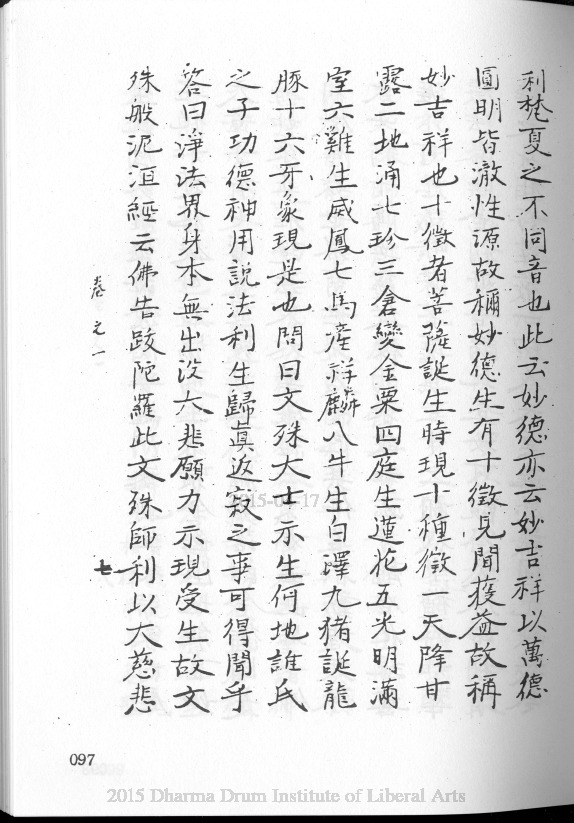 利梵夏之不同音也此云妙德亦云妙吉祥以萬德
圓明皆澈性源故稱妙德生有十徵見聞獲益故稱
妙吉祥也十徵者菩薩誕生時現十種徵一天降甘
露二地涌七珍三倉變金粟四庭生蓮花五光明滿
室六雞生威鳳七馬產祥麟八牛生白澤九猪誕龍
豚十六牙象現是也問曰文殊大士示生何地誰氏
之子功德神用說法利生歸真返寂之事可得聞乎
答曰淨法界身本無出沒大悲願力示現受生故文
殊般泥洹經云佛告跋陀羅此文殊師利以大慈悲
卷之一
七
097
2015-04-17
2015 Dharma Drum Institute of Liberal Arts